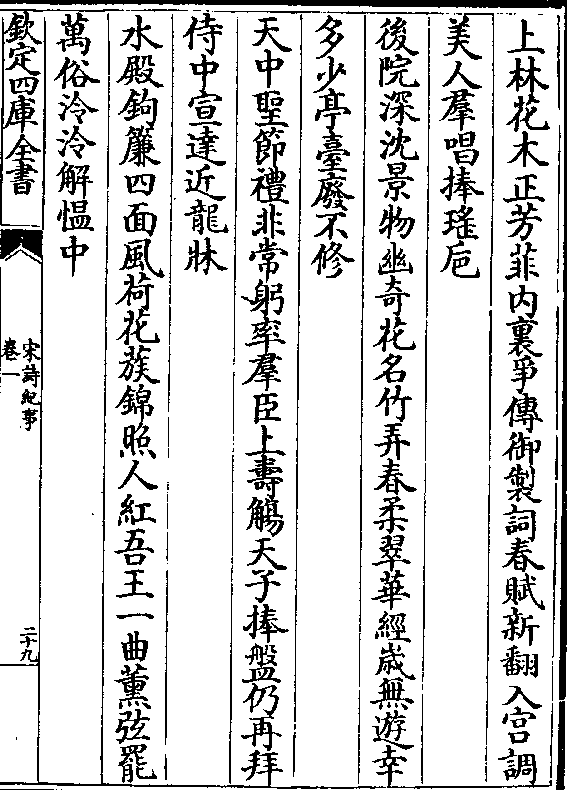 上林花木正芳菲内裏爭傳御製詞春賦新翻入宮調
美人羣唱捧瑤巵
後院深沈景物幽奇花名竹弄春柔翠華經歲無遊幸
多少亭臺廢不修
天中聖節禮非常躬率羣臣上壽觴天子捧盤仍再拜
侍中宣達近龍牀
水殿鉤簾四面風荷花蔟錦照人紅吾王一曲薰弦罷
萬俗泠泠解愠中
欽定四庫全書
宋詩紀事
卷一
二十九